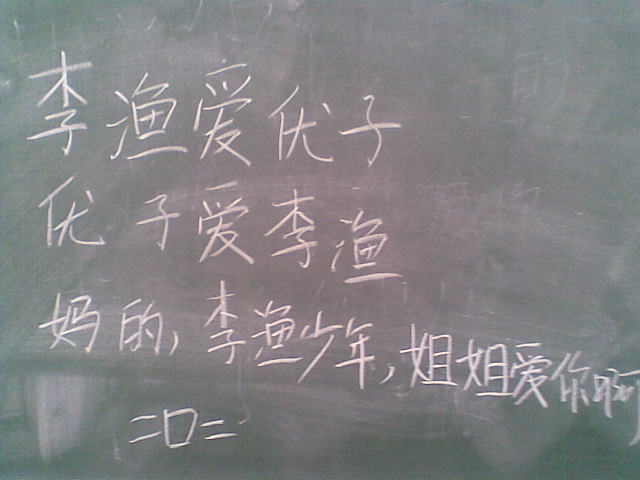 李渔爱优子
优子爱李渔
妈的,李渔少年,姐姐爱你啊
=口=